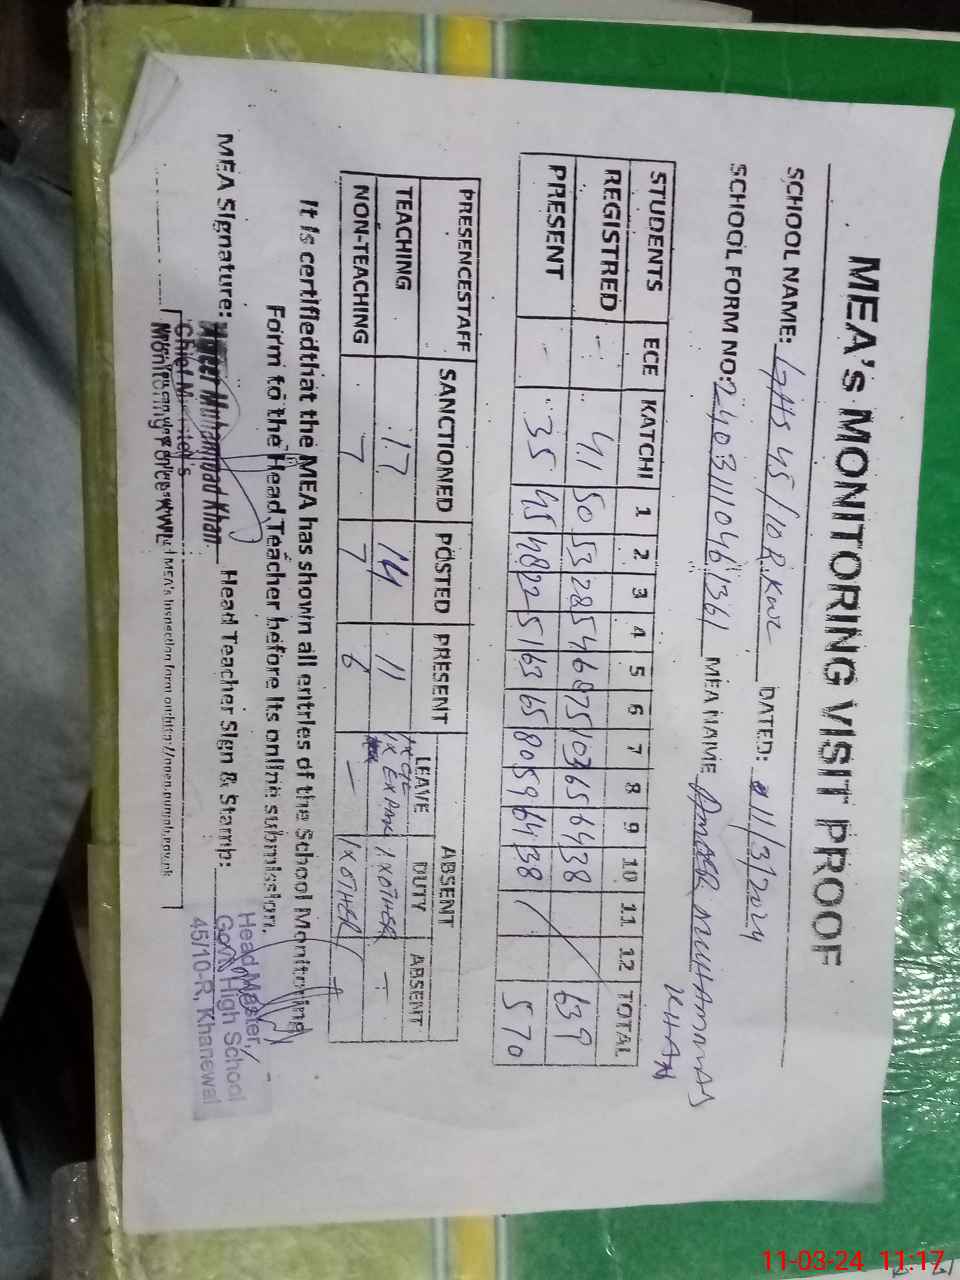 MEA's MONITORING VISIT PROOF
SCHOOL NAME: GHS 45/10R KWL DATED: 11/3/2024
SCHOOL FORM NO: MEA NAME AMEER MUHAMMAD KHAN
STUDENTS ECE KATCHI 1 2 3 4 5 6 7 8 9 10 11 12 TOTAL
REGISTRED - 41 50 53 28 54 68 75 103 65 64 38 639
PRESENT - 35 45 48 22 51 63 65 80 59 64 38 570
PRESENCESTAFF SANCTIONED POSTED PRESENT ABSENT
LEAVE DUTY ABSENT
TEACHING 17 14 11 1x 1x 1XOTHER -
NON-TEACHING 7 7 6 - 1XOTHER
It is certifiedthat the MEA has shown all entries of the School Monitoring
Form to the Head Teacher before its online submission.
MEA Signature: Head Teacher Sign & Stamp:
Ameer Muhammad Khan
Chief Minister's
Monitoring Force KWL
MEA's Inspection form on:
Head Master,
Govt. High School
45/10-R, Khanewal
11-03-24 11:17